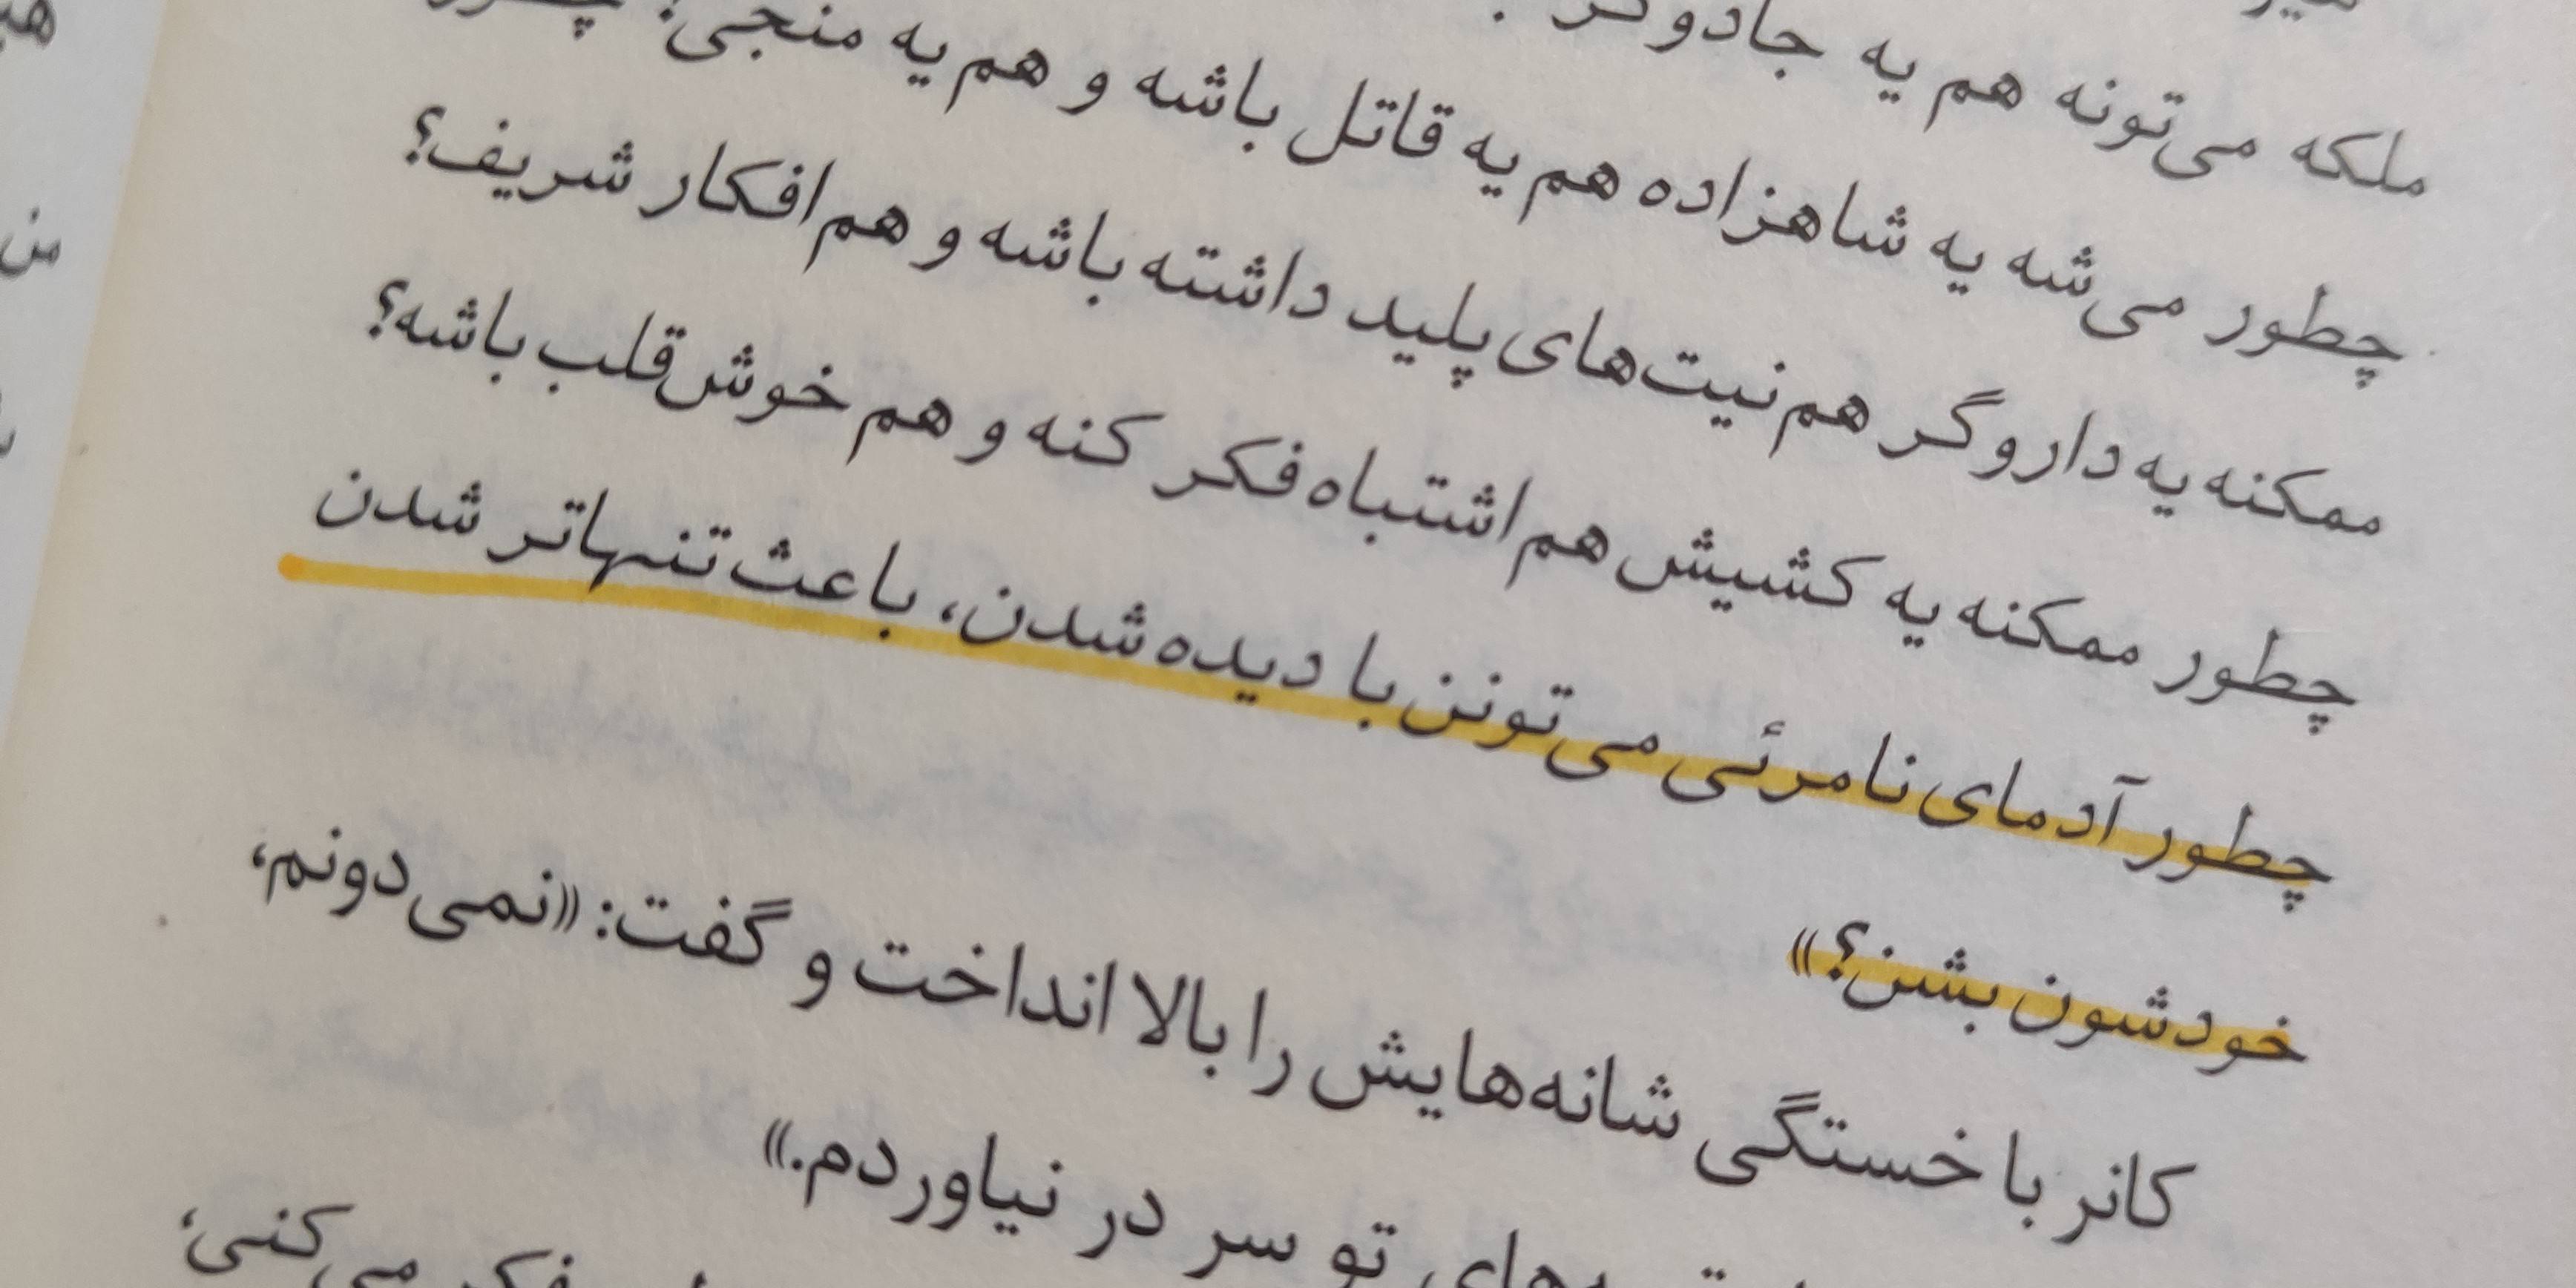 ملکه می‌تونه هم یه جادوگر
چطور می‌شه یه شاهزاده هم یه قاتل باشه و هم یه منجی؟ چطور
ممکنه یه داروگر هم نیت‌های پلید داشته باشه و هم افکار شریف؟
چطور ممکنه یه کشیش هم اشتباه فکر کنه و هم خوش‌قلب باشه؟
چطور آدمای نامرئی می‌تونن با دیده شدن، باعث تنهاتر شدن
خودشون بشن؟»
کانر با خستگی شانه‌هایش را بالا انداخت و گفت: «نمی‌دونم،
تو سر در نیاوردم.»
فکر می‌کنی؛
من